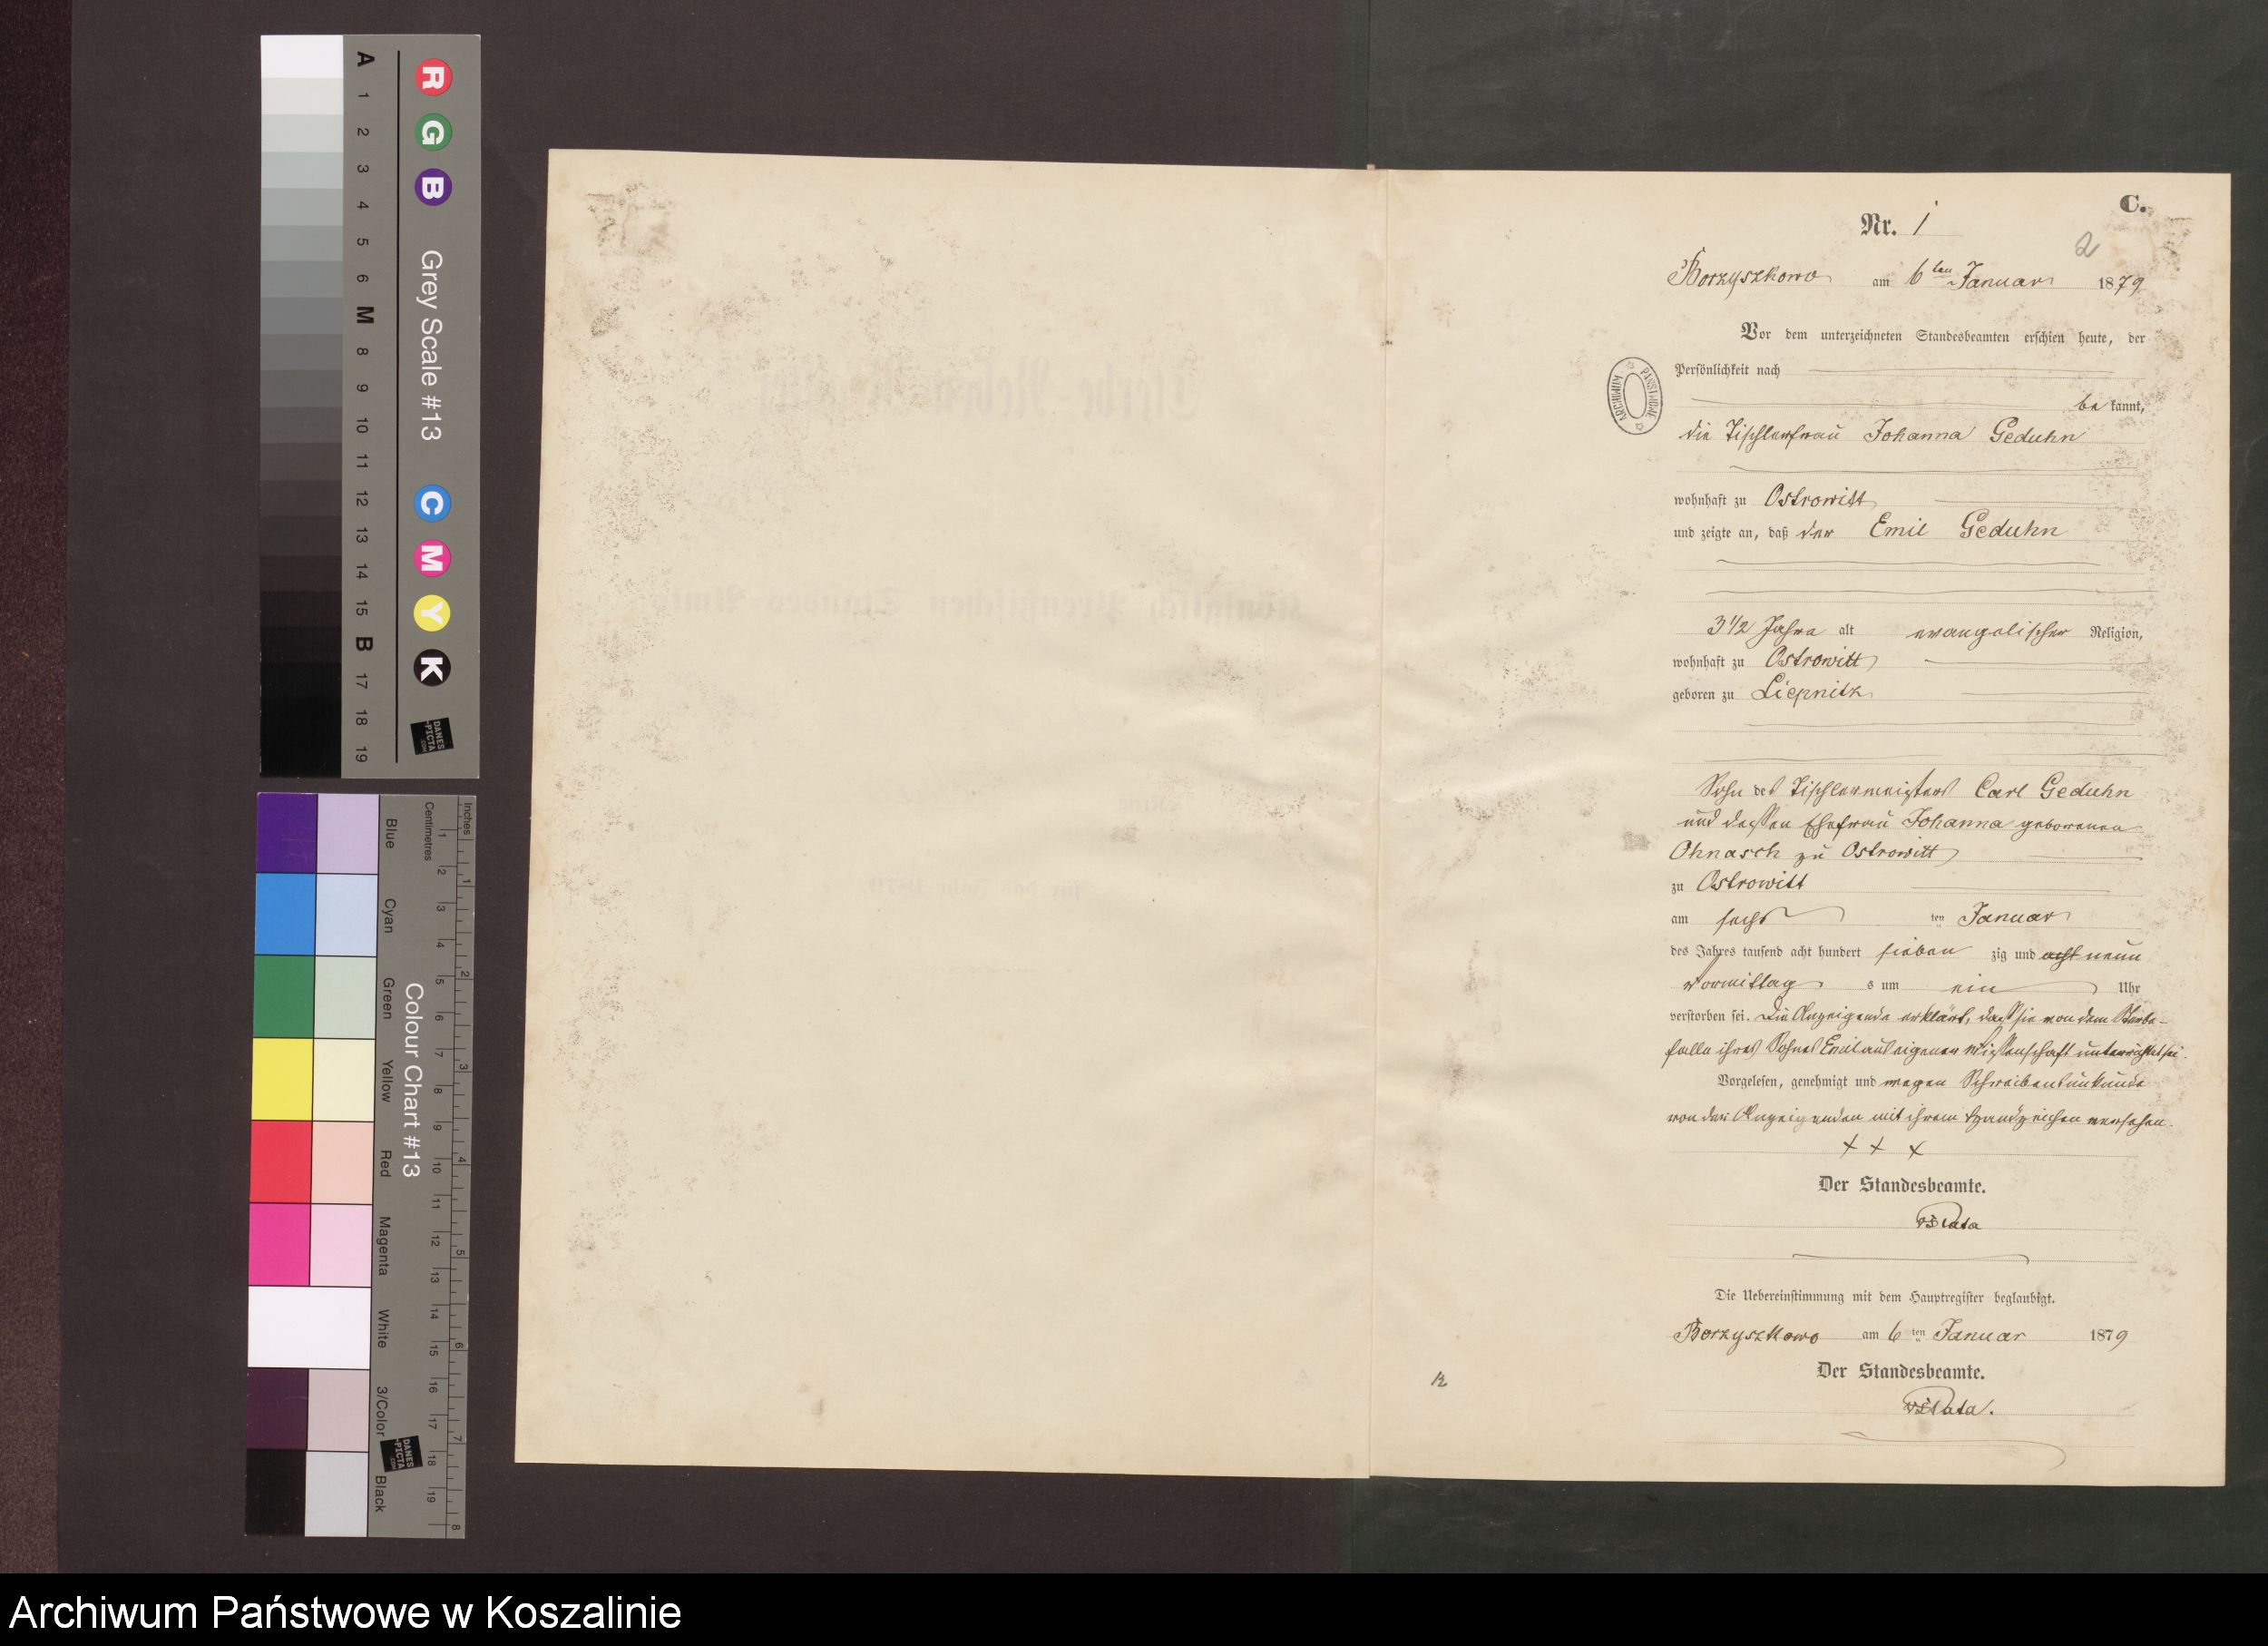 C.
Nr. 1
2
Borzyszkowo am 6ten Januar 1879
Vor dem unterzeichneten Standesbeamten erschien heute, der
Persönlichkeit nach
be kannt,
die Tischlerfrau Johanna Geduhn
wohnhaft zu Ostrowitt
und zeigte an, daß der Emil Geduhn
3 1/2 Jahre alt evangelischer Religion,
wohnhaft zu Ostrowitt
geboren zu Liepnitz
Sohn des Tischlermeisters Carl Geduhn
und dessen Ehefrau Johanna geborenen
Ohnasch zu Ostrowitt
zu Ostrowitt
am sechs ten Januar
des Jahres tausend acht hundert sieben zig und acht neun
Vormittag s um ein Uhr
verstorben sei. Die Anzeigende erklärt, daß sie von dem Sterbe-
falle ihres Sohnes Emil aus eigener Wissenschaft unterrichtet sei.
Vorgelesen, genehmigt und wegen Schreibensunkunde
von der Anzeigenden mit ihrem Handzeichen versehen.
+ + +
Der Standesbeamte.
Die Uebereinstimmung mit dem Hauptregister beglaubigt.
Borzyszkowo am 6 ten Januar 1879
Der Standesbeamte.
ARCHIWUM PAŃSTWOWE
A 1 2 3 4 5 6 M 8 9 10 11 12 13 14 15 B 17 18 19
R G B Grey Scale #13 C M Y K
DANES PICTA .COM
Blue Cyan Green Yellow Red Magenta White 3/Color Black
Colour Chart #13
Centimetres 1 2 3 4 5 6 7 8 9 10 11 12 13 14 15 16 17 18 19
Inches 1 2 3 4 5 6 7 8
DANES PICTA .COM
Archiwum Państwowe w Koszalinie